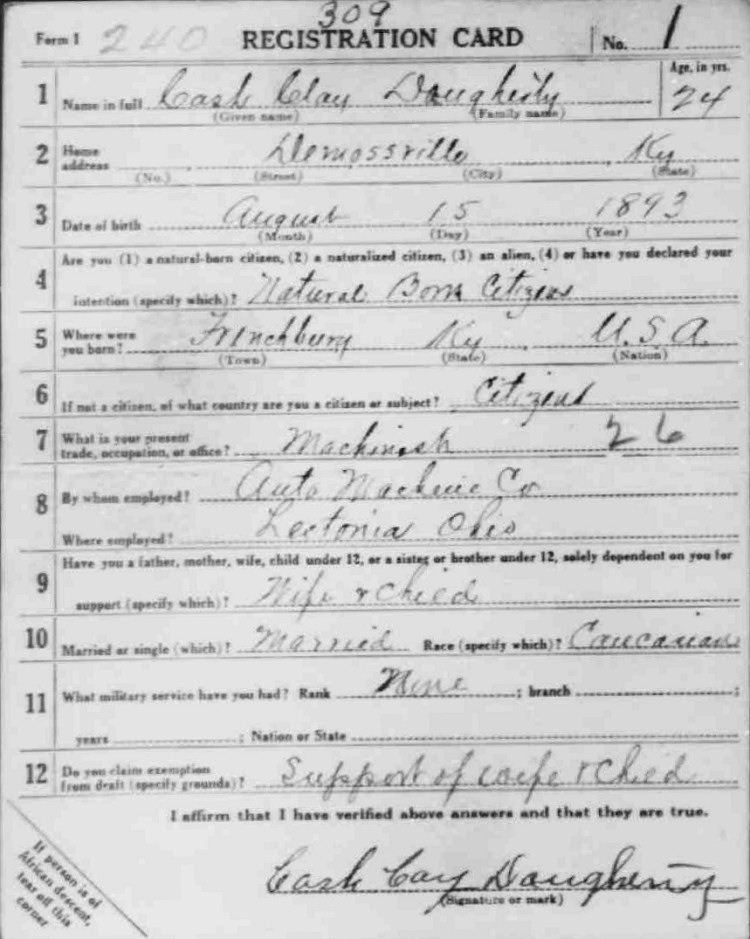 309
Form 1 240 REGISTRATION CARD No. 1
1 Name in full Cash Clay Dougherty Age, in yrs. 24
(Given name) (Family name)
2 Home address Demossville, Ky
(No.) (Street) (City) (State)
3 Date of birth August 15 1893
(Month) (Day) (Year)
4 Are you (1) a natural-born citizen, (2) a naturalized citizen, (3) an alien, (4) or have you declared your
intention (specify which)? Natural Born Citizen
5 Where were you born? Frenchburg Ky. U.S.A.
(Town) (State) (Nation)
6 If not a citizen, of what country are you a citizen or subject? Citizen
7 What is your present trade, occupation, or office? Machinist 26
8 By whom employed? Auto Machine Co
Where employed? Leetonia Ohio
9 Have you a father, mother, wife, child under 12, or a sister or brother under 12, solely dependent on you for
support (specify which)? Wife & Child
10 Married or single (which)? Married Race (specify which)? Caucasian
11 What military service have you had? Rank None ; branch ;
years ; Nation or State
12 Do you claim exemption from draft (specify grounds)? Support of wife & Child
I affirm that I have verified above answers and that they are true.
Cash Cay Dougherty
(Signature or mark)
If person is of
African descent,
tear off this
corner